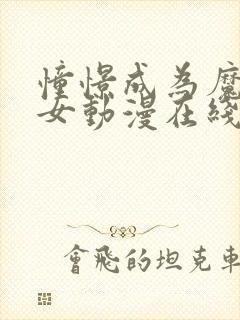 憧憬成為魔
女動漫在綫
會飛的坦克車